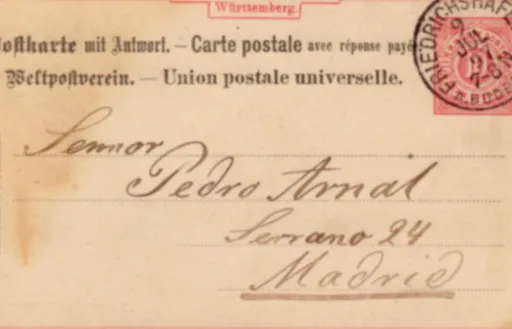 Württemberg.
Postkarte mit Antwort. – Carte postale avec réponse payé
Weltpostverein. – Union postale universelle.
FRIEDRICHSHAFE
9
JUL
7-8N
Sennor
Pedro Arnal
Serrano 24
Madrid